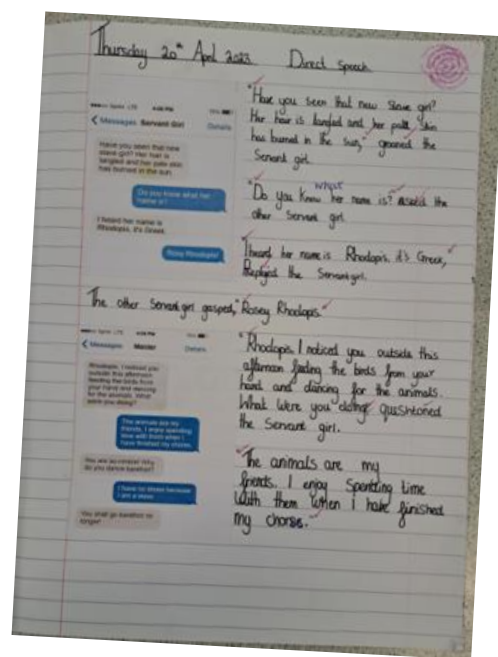 Thursday 20th April 2023 Direct Speech
Messages Servant Girl Details
Have you seen that new
slave girl? Her hair is
tangled and her pale skin
has burned in the sun.
Do you know what her
name is?
I heard her name is
Rhodopis. It's Greek.
Rosey Rhodopis!
"Have you seen that new slave girl?
Her hair is tangled and her pale skin
has burned in the sun," groaned the
Servant girl.
"Do you know what her name is?" asked the
other Servant girl.
I heard her name is Rhodopis. it's Greek,
Replyed the Servant girl.
The other Servant girl gasped, "Rosey Rhodopis."
Messages Master Details
Rhodopis, I noticed you
outside this afternoon
feeding the birds from
your hand and dancing
for the animals. What
were you doing?
The animals are my
friends. I enjoy spending
time with them when I
have finished my chores.
You are so nimble! Why
do you dance barefoot?
I have no shoes because
I am a slave.
You shall go barefoot no
longer!
"Rhodopis. I noticed you outside this
afternoon feeding the birds from your
hand and dancing for the animals.
What were you doing" quushtoned
the Servant girl.
"The animals are my
friends. I enjoy Spending time
With them When i have finished
my chorse."